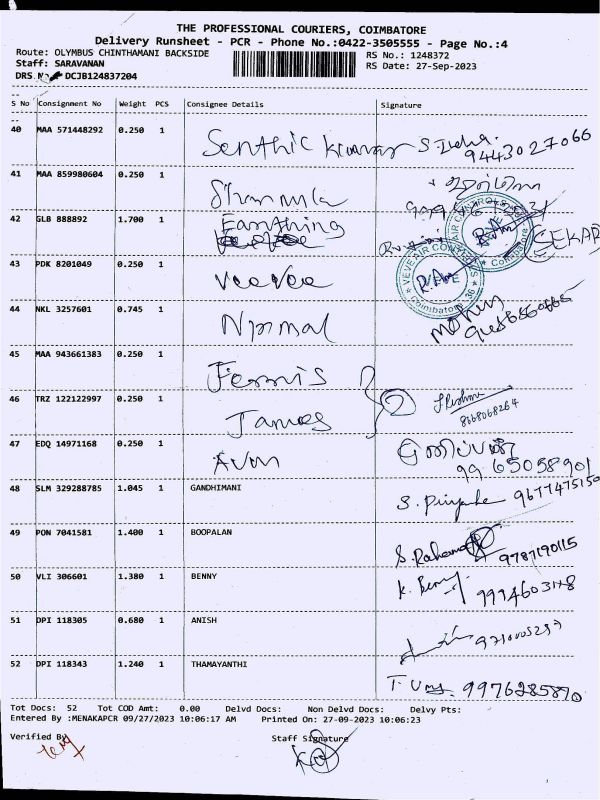 THE PROFESSIONAL COURIERS, COIMBATORE
Delivery Runsheet - PCR - Phone No.:0422-3505555 - Page No.:4
Route: OLYMBUS CHINTHAMANI BACKSIDE
RS No.: 1248372
Staff: SARAVANAN
RS Date: 27-Sep-2023
DRS DCJB124837204
S No Consignment No Weight PCS Consignee Details Signature
40 MAA 571448292 0.250 1 Senthil Kumar 9443027066
41 MAA 859980604 0.250 1 Sharmila
42 GLB 888892 1.700 1 Earthing (SEKAR
43 PDK 8201049 0.250 1 VeeVee
VEVE AIR CON
Coimbatore
44 NKL 3257601 0.745 1 Nirmal
45 MAA 943661383 0.250 1 Fennis
46 TRZ 122122997 0.250 1 James 8668068264
47 EDQ 14971168 0.250 1 Avm 9965058901
48 SLM 329288785 1.045 1 GANDHIMANI S. 9677475150
49 PON 7041581 1.400 1 BOOPALAN 9787190115
50 VLI 306601 1.380 1 BENNY K. Benny
51 DPI 118305 0.680 1 ANISH
52 DPI 118343 1.240 1 THAMAYANTHI T. Uma 9976285870
Tot Docs: 52 Tot COD Amt: 0.00 Delvd Docs: Non Delvd Docs: Delvy Pts:
Entered By :MENAKAPCR 09/27/2023 10:06:17 AM Printed On: 27-09-2023 10:06:23
Verified By Staff Signature